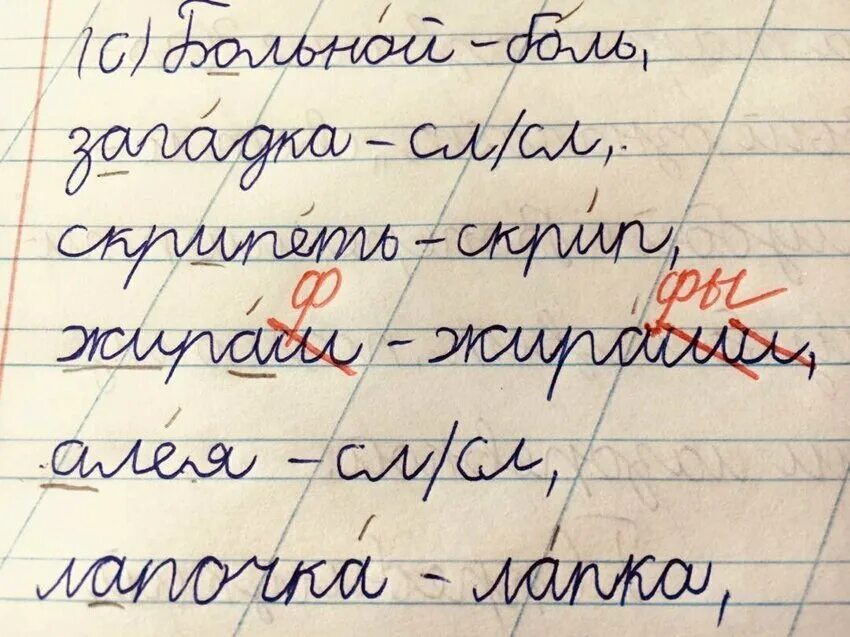 (с) Больно́й – бо́ль,
зага́дка – сл/сл,
скрипе́ть – скри́п,
ф фы
жира́ш – жира́ши,
але́я – сл/сл,
лапочка́ – ла́пка,